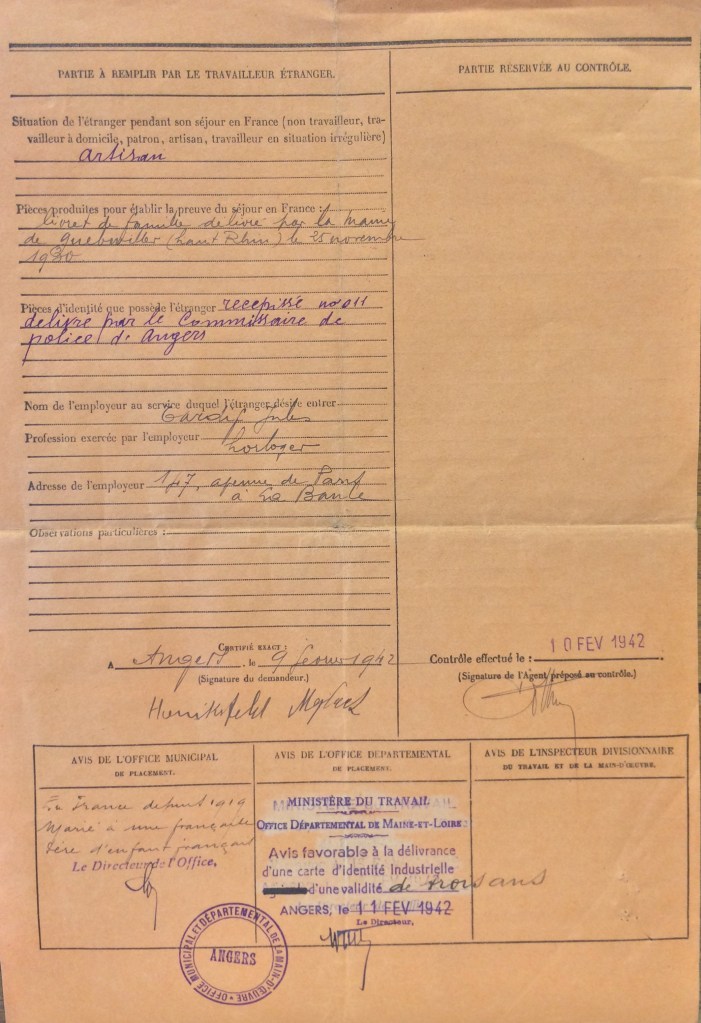 PARTIE À REMPLIR PAR LE TRAVAILLEUR ÉTRANGER.
Situation de l'étranger pendant son séjour en France (non travailleur, tra-
vailleur à domicile, patron, artisan, travailleur en situation irrégulière)
artisan
Pièces produites pour établir la preuve du séjour en France :
livret de famille delivré par la Mairie
de Guebwiller (haut Rhin) le 25 novembre
1920
Pièces d'identité que possède l'étranger recepissé no 011
delivre par le Commissaire de
police d'Angers
Nom de l'employeur au service duquel l'étranger désire entrer
Tardif Jules
Profession exercée par l'employeur horloger
Adresse de l'employeur 147, avenue de Paris
à La Baule
Observations particulières :
CERTIFIÉ EXACT :
A Angers, le 9 fevrier 1942
(Signature du demandeur.)
PARTIE RÉSERVÉE AU CONTRÔLE.
Contrôle effectué le : 10 FEV 1942
(Signature de l'Agent préposé au contrôle.)
AVIS DE L'OFFICE MUNICIPAL
DE PLACEMENT.
En France depuis 1919
Marié à une française
Père d'enfant français
Le Directeur de l'Office,
AVIS DE L'OFFICE DÉPARTEMENTAL
DE PLACEMENT.
MINISTÈRE DU TRAVAIL
OFFICE DÉPARTEMENTAL DE MAINE-ET-LOIRE
Avis favorable à la délivrance
d'une carte d'identité Industrielle
d'une validité de trois ans
ANGERS, le 11 FEV 1942
Le Directeur,
AVIS DE L'INSPECTEUR DIVISIONNAIRE
DU TRAVAIL ET DE LA MAIN-D'ŒUVRE.
OFFICE MUNICIPAL ET DÉPARTEMENTAL DE LA MAIN-D'ŒUVRE
ANGERS